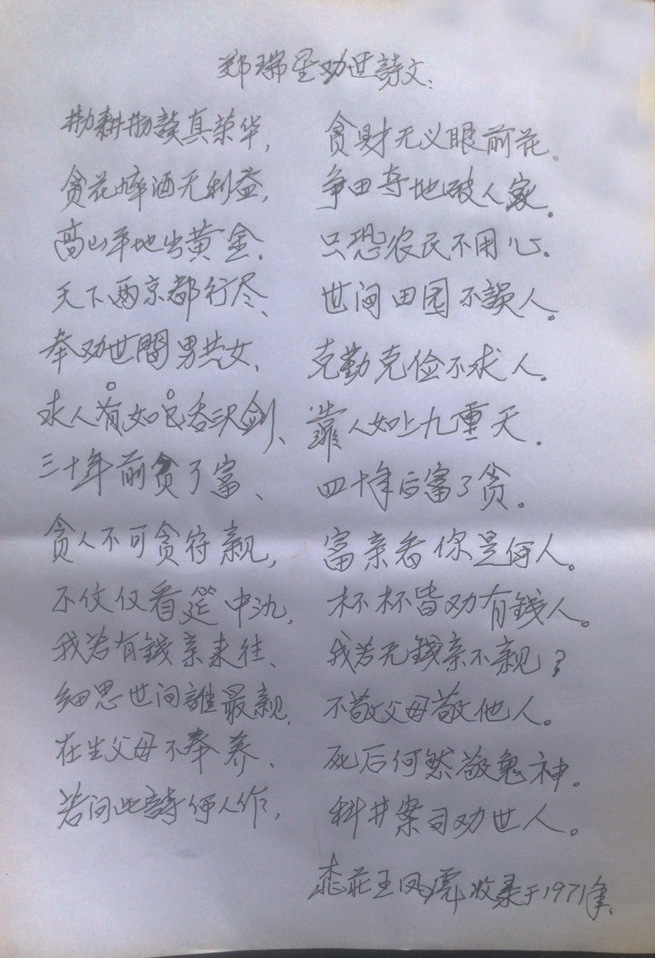 郑瑞星劝世詩文:
勤耕勤讀真荣华, 贪財无义眼前花。
贪花醉酒无利益, 争田夺地破人家。
高山平地出黄金. 只恐农民不用心。
天下两京都行尽、 世间田园不誤人。
奉劝世間男共女、 克勤克俭不求人。
求人有如吞沢剑、 靠人如上九重天.
三十年前贪了富、 四十年后富了贪。
贪人不可贪符親, 富亲看你是何人。
不仅看筵中氿, 杯杯皆劝有錢人。
我若有錢亲来往、 我若无錢亲不親?
细思世间誰最親, 不敬父母敬他人。
在生父母不奉养、 死后何然敬鬼神.
若问此詩何人作, 科井案司劝世人。
王凤虎收录于1971年、